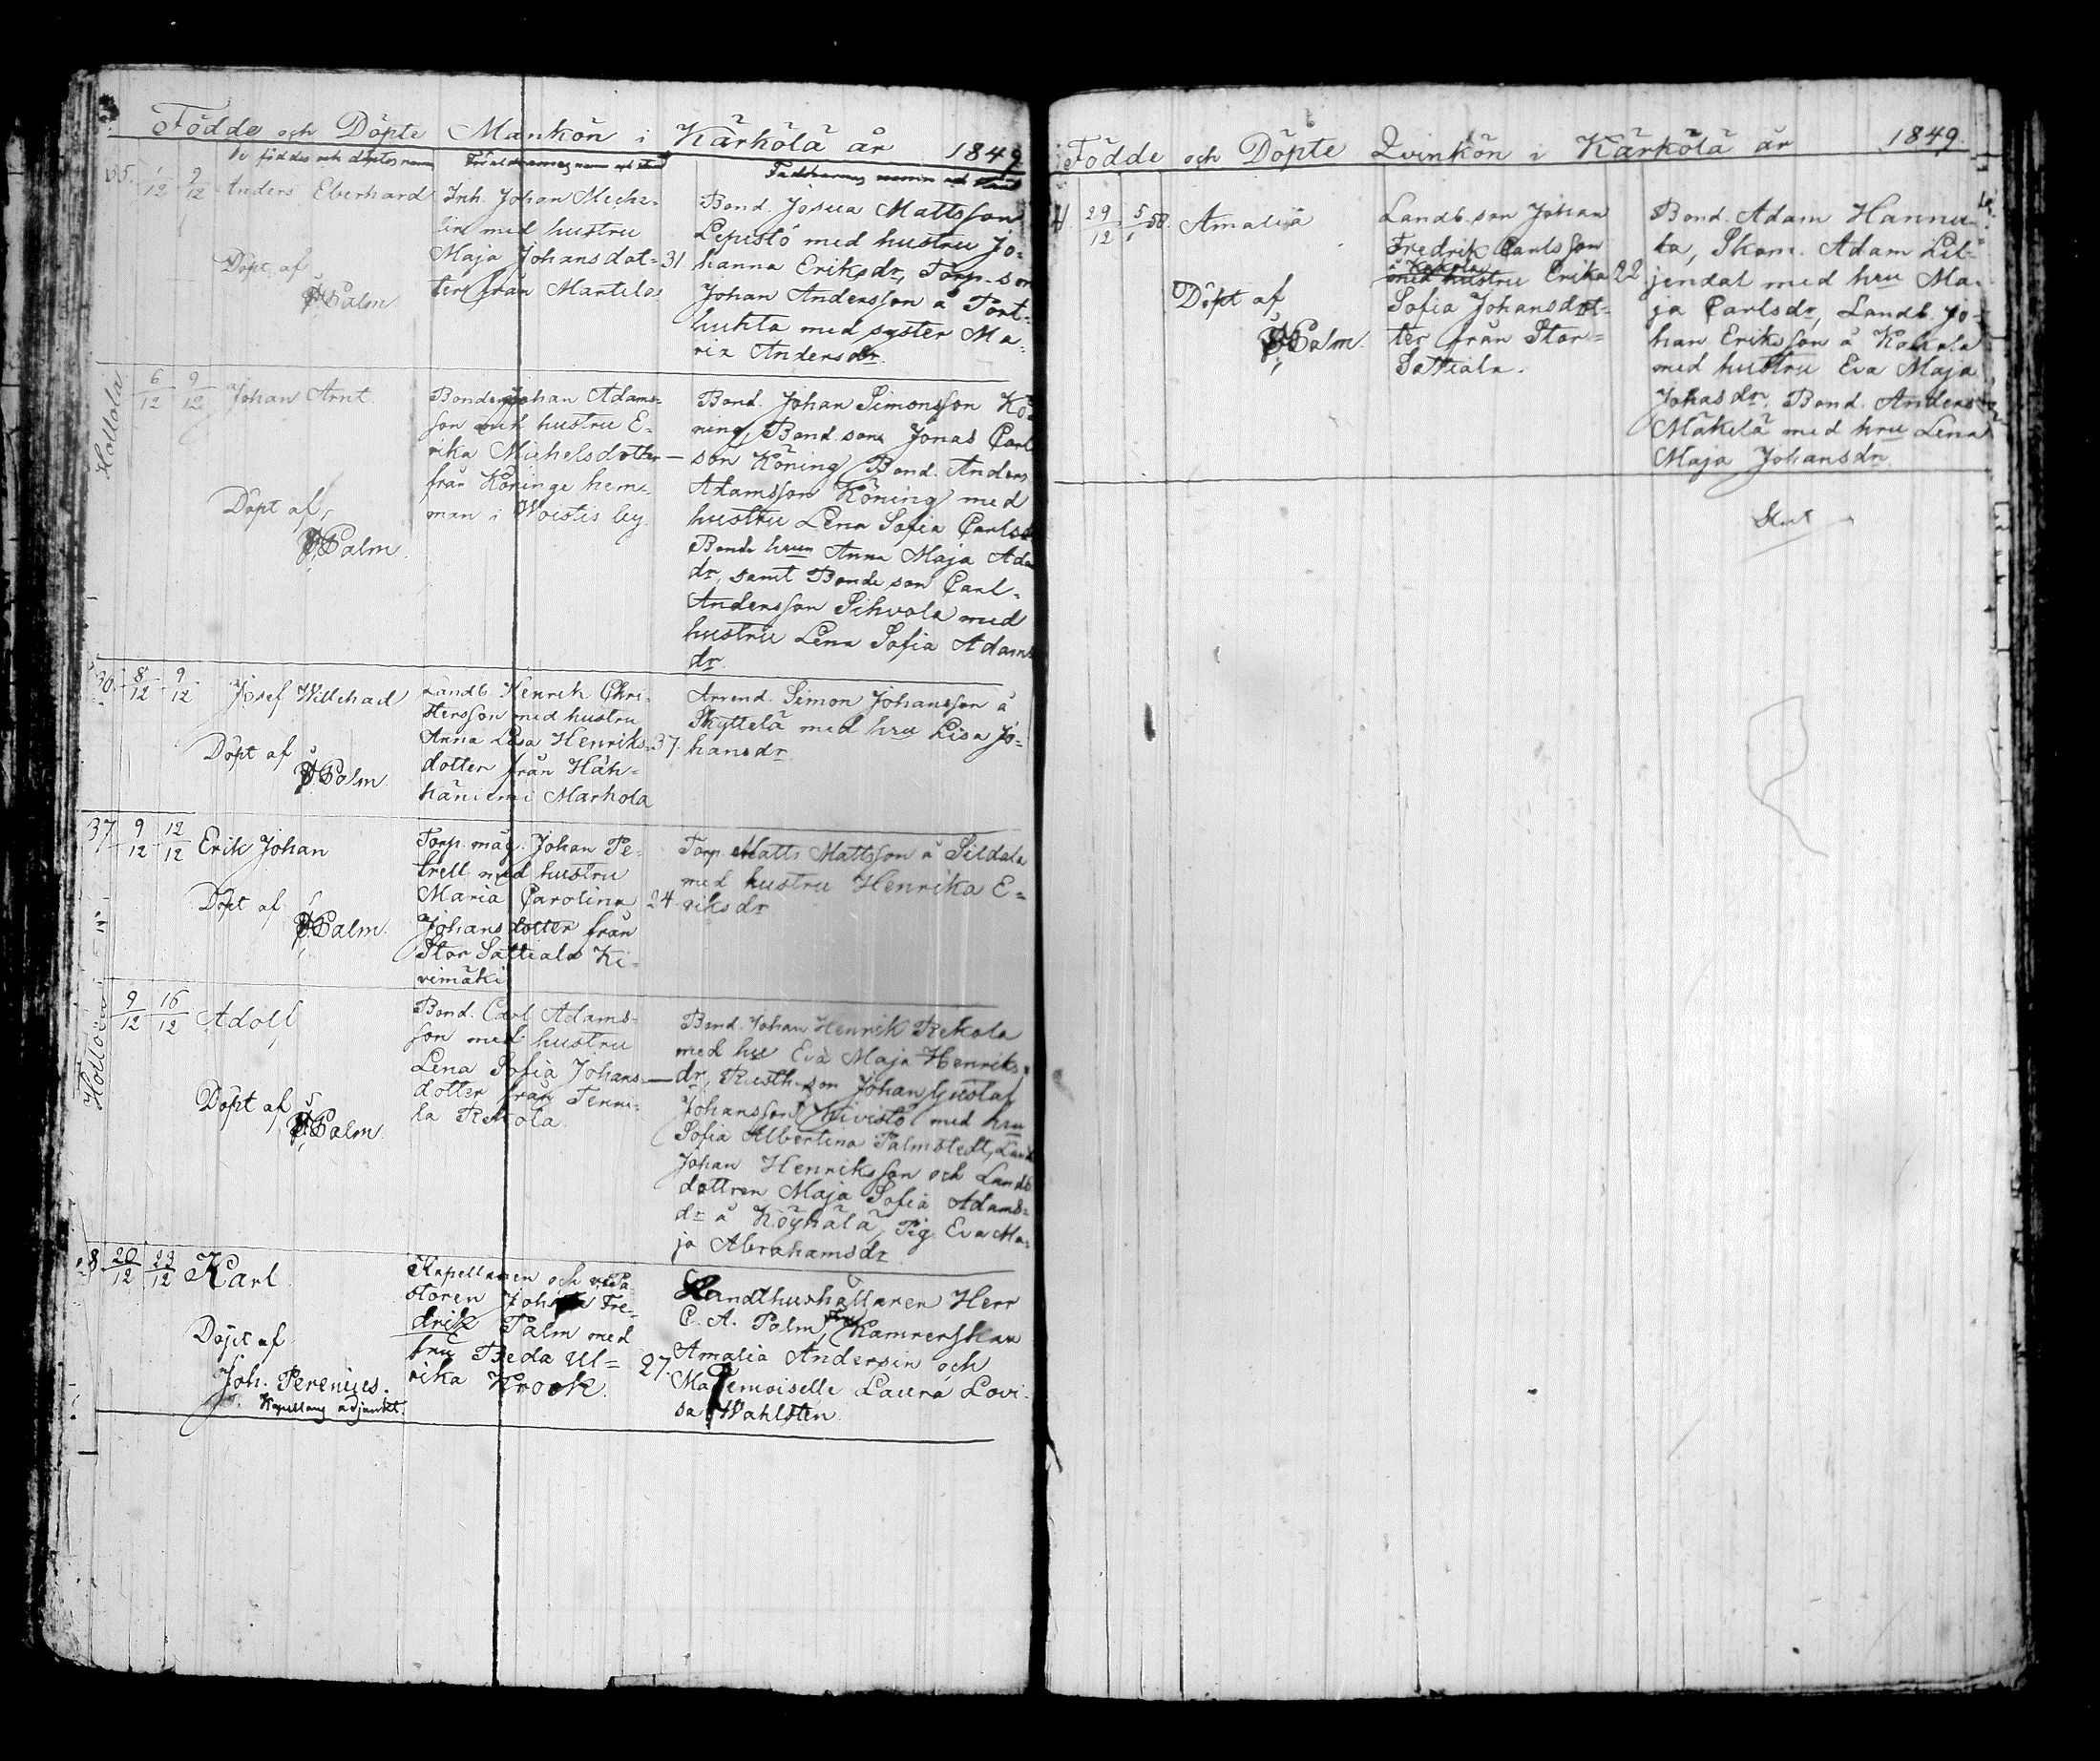 Födde och Döpte Mankön i Kärkölä år 1849
De föddes och döptes namn
Föräldrarnes namn och stånd
Faddrarnes namn och stånd
35. 1/12 9/12 Anders Eberhard
Döpt af
Palm
Inh. Johan Miche-
lin med hustru
Maja Johansdot-
ter från Martela
31
Bond. Josua Mattsson
Lepistö med hustru Jo-
hanna Eriksdr, Torp. son
Johan Andersson å Tort-
huhta med syster Ma-
ria Andersdr.
Hollola
6/12 9/12 Johan Arnt
Döpt af
Palm.
Bonden Johan Adams-
son och hustru E-
rika Michelsdotter
från Köninge hem-
man i Woistis by.
—
Bond. Johan Simonsson Kö-
ning, Bond. son Jonas Carl
son Köning, Bond. Anders
Adamsson Köning med
hustru Lena Sofia Carlsd
Bonde hrun Anna Maja Adam
dr, samt Bonde son Carl
Andersson Sihvola med
hustru Lena Sofia Adams
dr.
8/12 9/12 Josef Willehad
Döpt af
Palm
Landb. Henrik Chri-
stersson med hustru
Anna Lisa Henriks-
dotter från Häh-
käniemi Markola
37.
Arrend. Simon Johansson å
Skyttelä med hru Lisa Jo-
hansdr.
37 9/12 12/12 Erik Johan
Döpt af
Palm.
Torp. måg. Johan Pe-
trell med hustru
Maria Carolina
Johansdotter från
Stor Sattiala Ki-
vimäki
24.
Torp. Matts Mattsson å Sildala
med hustru Henrika E-
riksdr
9/12 16/12 Adolf
Döpt af
Palm.
Bond. Carl Adams-
son med hustru
Lena Sofia Johans-
dotter från Tenni-
lä Rekola
—
Bond. Johan Henrik Rekola
med hu Eva Maja Henriks-
dr, Rusth. son Johan Gustaf
Johansson Kivistö med hru
Sofia Albertina Palmstedt, Land
Johan Henriksson och Landb
dottren Maja Sofia Adams-
dr å Köyhälä, Pig. Eva Ma-
ja Abrahamsdr
38 20/12 23/12 Karl
Döpt af
Joh. Perenius.
Kapellans adjunkt.
Kapellanen och v. Pa-
storen Johan Fre-
drik Palm med
fru Beda Ul-
rika Krook.
27.
Landthushållaren Herr
C. A. Palm, Fru Kamrerskan
Amalia Andersin och
Mademoiselle Laura Lovi-
sa Wahlsten.
Födde och Döpte Qvinkön i Kärkölä år 1849.
29/12 5/1 50. Amalia
Döpt af
Palm.
Landb. son Johan
Fredrik Carlsson
med hustru Erika
Sofia Johansdot-
ter från Stor-
Sattiala.
22
Bond. Adam Hannu-
la, Skom. Adam Lil-
jendal med hru Ma-
ja Carlsdr, Landb. Jo-
han Eriksson å
med hustru Eva Maja
Johasdr. Bond. Anders
Mäkelä med hru Lena
Maja Johansdr.
Slut